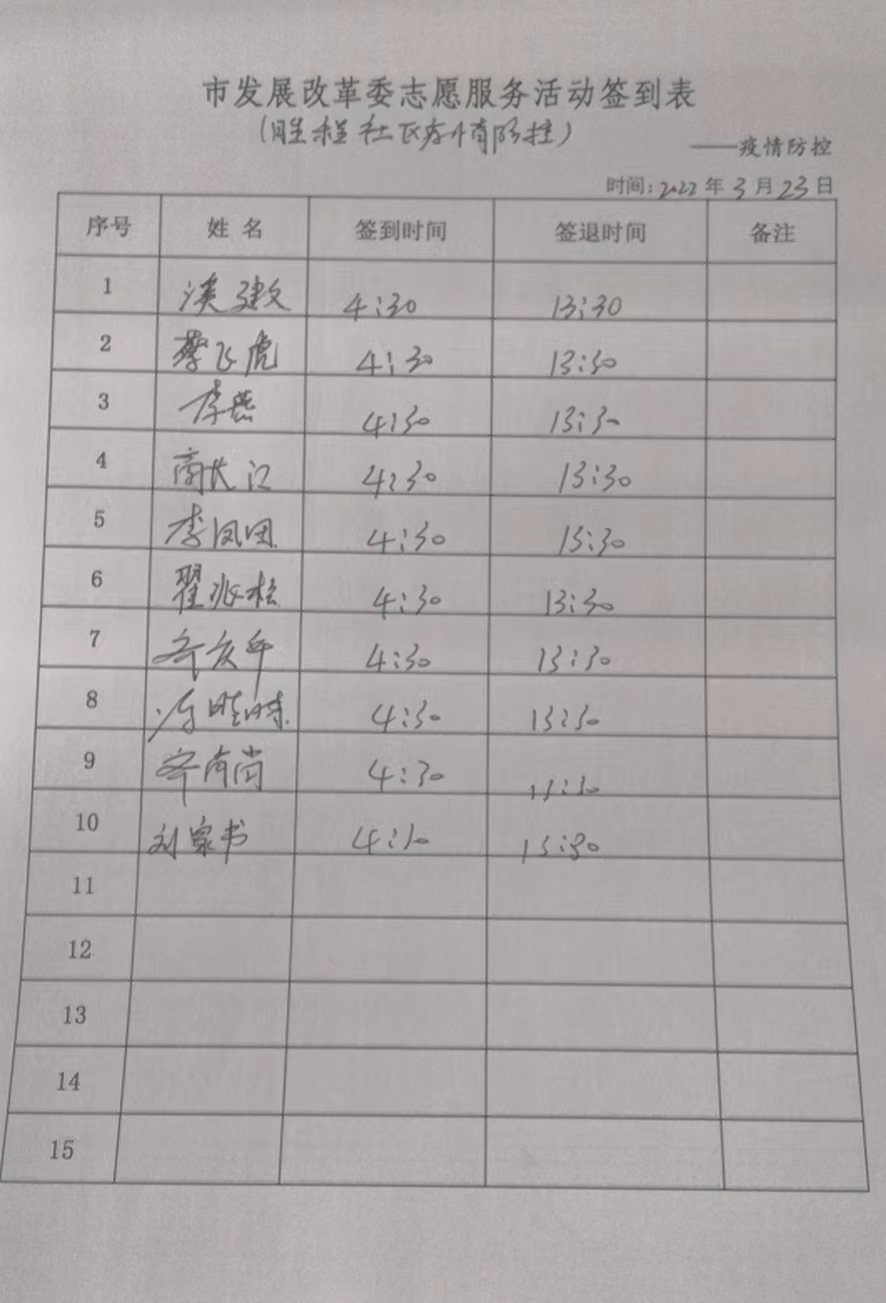 市发展改革委志愿服务活动签到表
(胜利社区疫情防控)
——疫情防控
时间:2022年3月23日
序号 姓名 签到时间 签退时间 备注
1 4:30 13:30
2 蔡飞虎 4:30 13:30
3 李燕 4:30 13:30
4 商长江 4:30 13:30
5 李凤团 4:30 13:30
6 翟兆松 4:30 13:30
7 4:30 13:30
8 4:30 13:30
9 4:30 13:30
10 刘家书 4:30 13:30
11
12
13
14
15